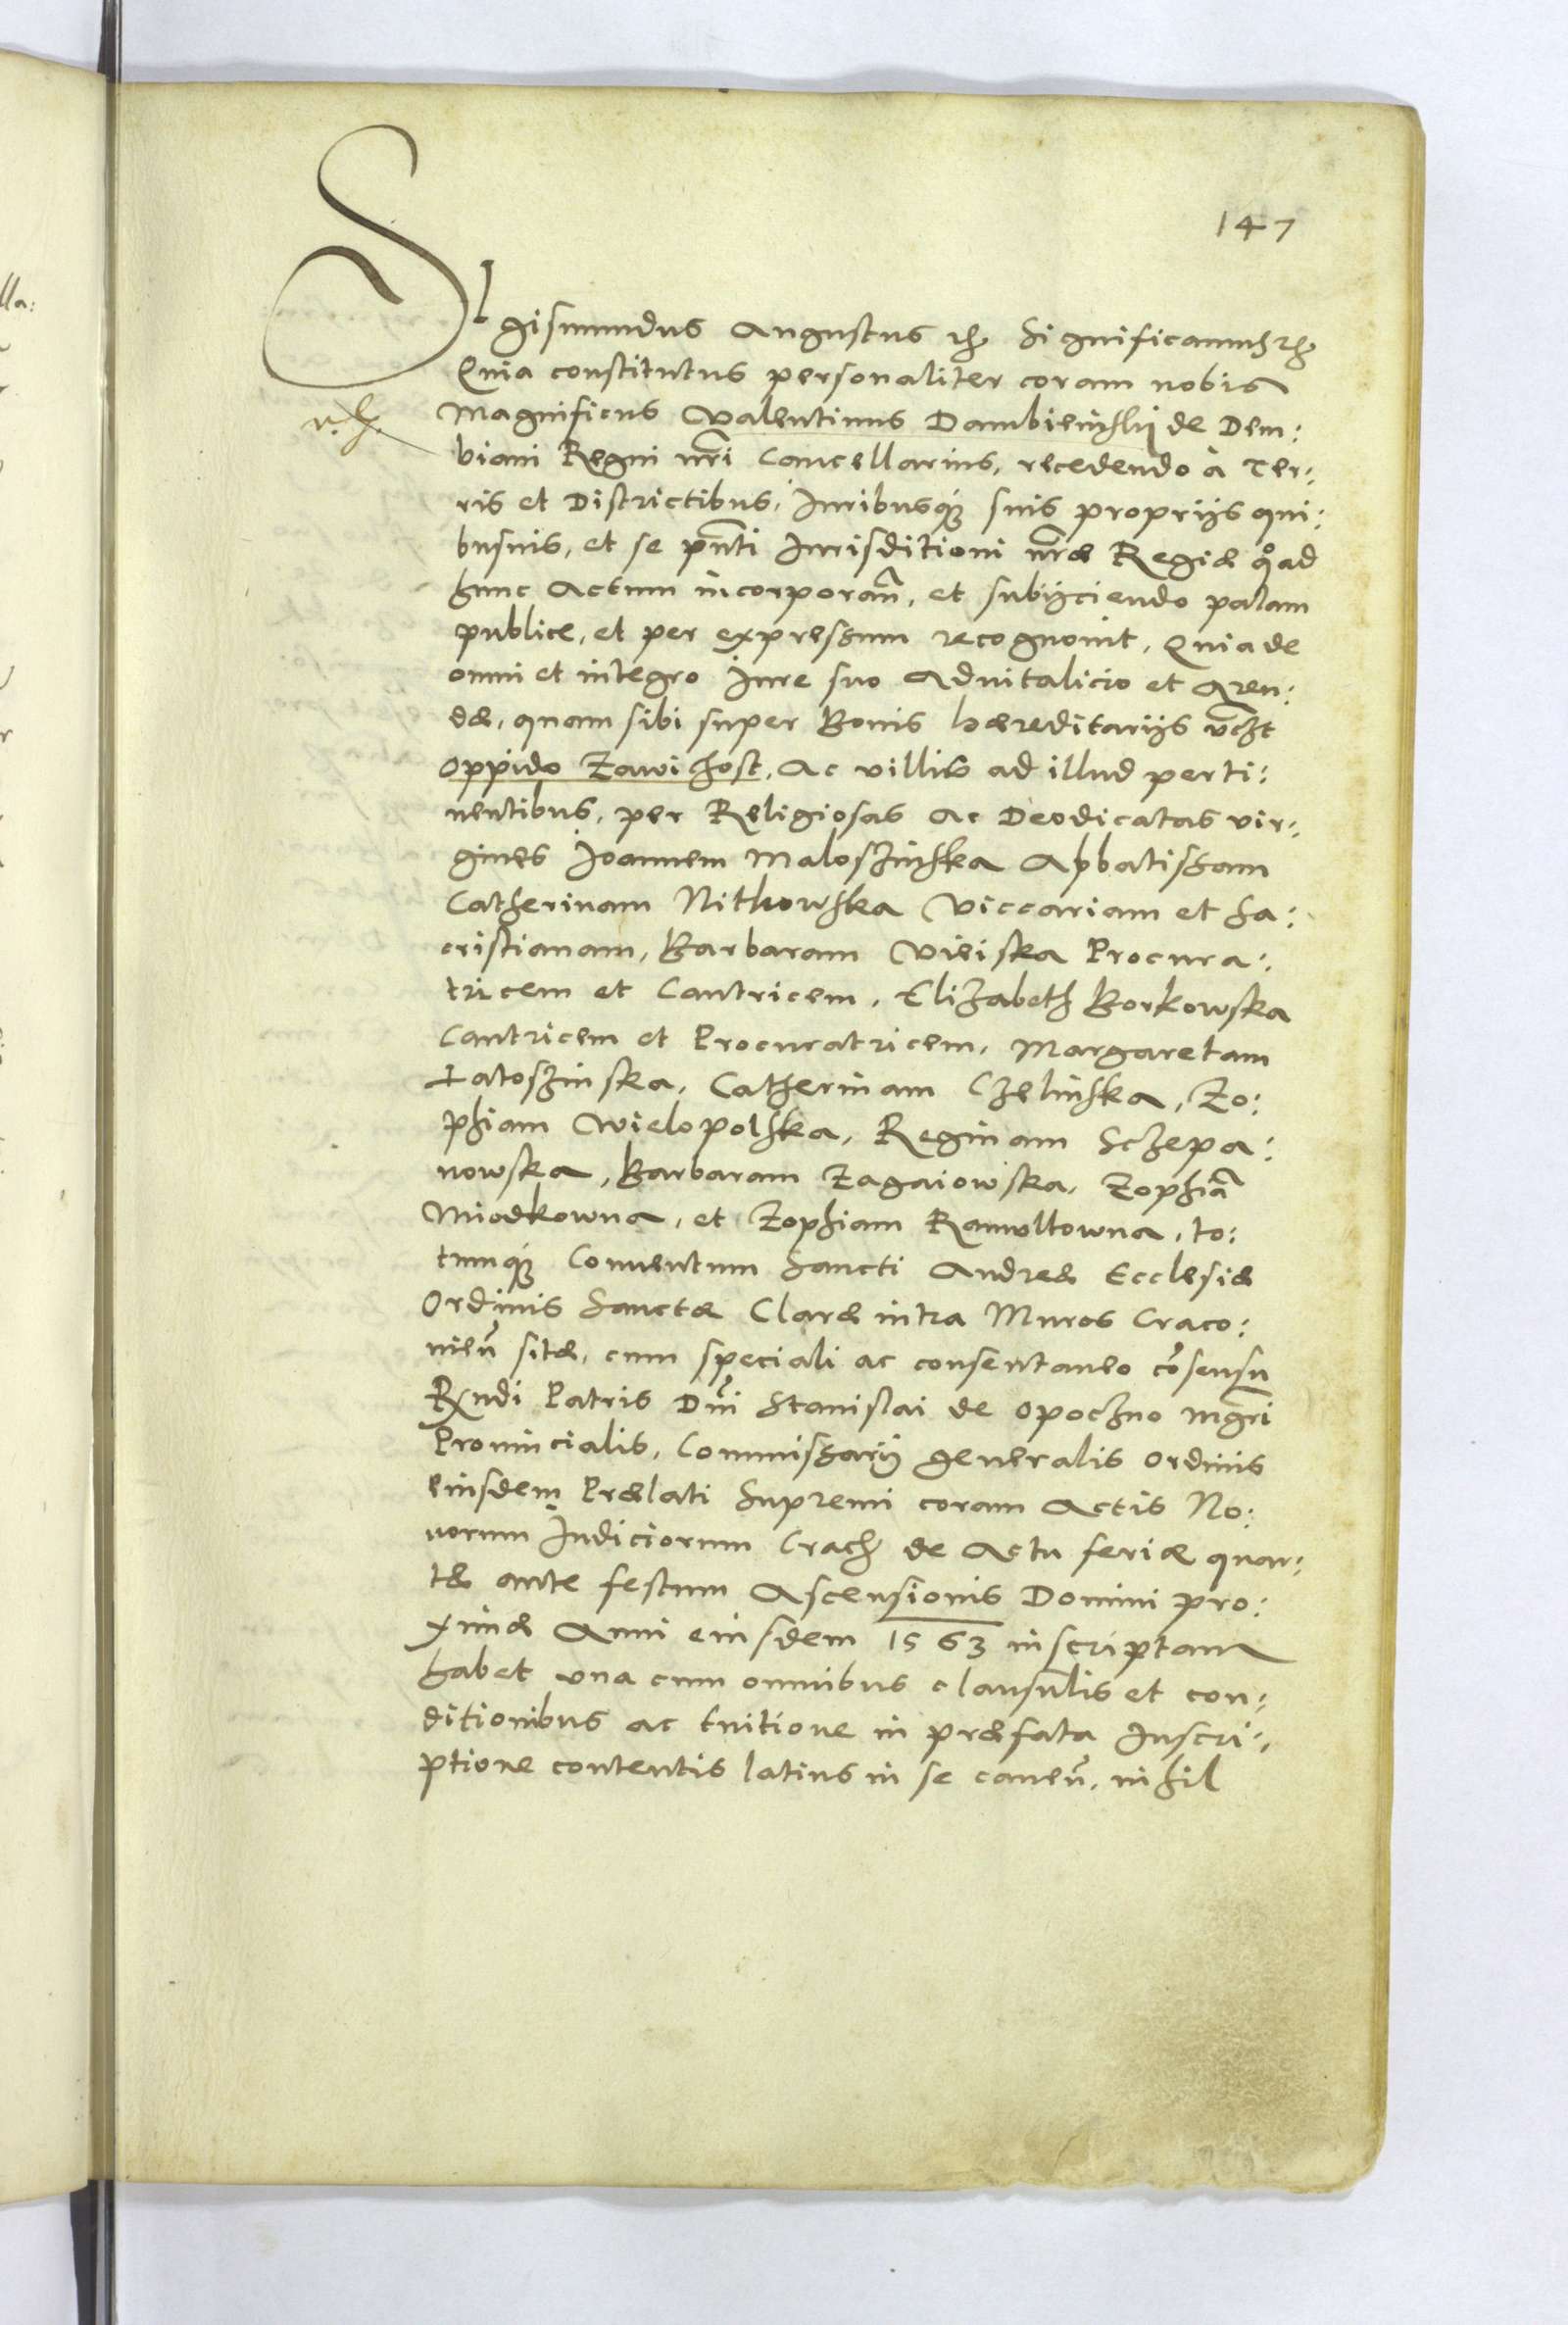 147
SIgismundus Augustus etc. Significamus etc.
Quia constitutus personaliter coram nobis
Magnificus Valentinus Dambieinskij de Dem:
biani Regni nr̃i Cancellarius, recedendo à Ter:
ris et Districtibus, Iuribusq́ue suis proprijs qui:
busuis, et se pñti Iurisditioni nr̃æ Regiæ qͦad
hunc Actum incorporañ, et subijciendo palam
publice, et per expressum recognouit, Quia de
omni et integro Iure suo Aduitalicio et Aren:
dæ, quam sibi super Bonis hæreditarijs vc̃zt
Oppido Zawichost, Ac villis ad illud perti:
nentibus, per Religiosas Ac Deodicatas vir:
gines Joannem Maloszinska Abbatissam
Catherinam Nitkowska Viccariam et Sa:
cristianam, Barbaram Viliska Procura:
tricem et Cantricem, Elizabeth Borkowska
Cantricem et Procuratricem, Margaretam
Latoszinska, Catherinam Czelinska, Zo:
phiam Wielopolska, Reginam Sczepa:
nowska, Barbaram Zagaiowska, Zophiã
Miodkowna, et Zophiam Ramultowna, to:
tumq́ue Conuentum Sancti Andreæ Ecclesiæ
Ordinis Sanctæ Claræ intra Muros Craco:
uieñ sitæ, cum speciali ac consentaneo cõsensu
Rndi Patris Dñi Stanislai de Opoczno mgr̃i
Prouincialis, Commissarij generalis ordinis
eiusdem Prælati Supremi coram Actis No:
uorum Iudiciorum Crach de Actu feriæ quar:
tæ ante festum Ascensionis Domini pro:
ximæ Anni eiusdem 1563 inscriptam
habet vna cum omnibus clausulis et con:
ditionibus ac tuitione in præfata Inscri:
ptione contentis latius in se caueñ, nihil